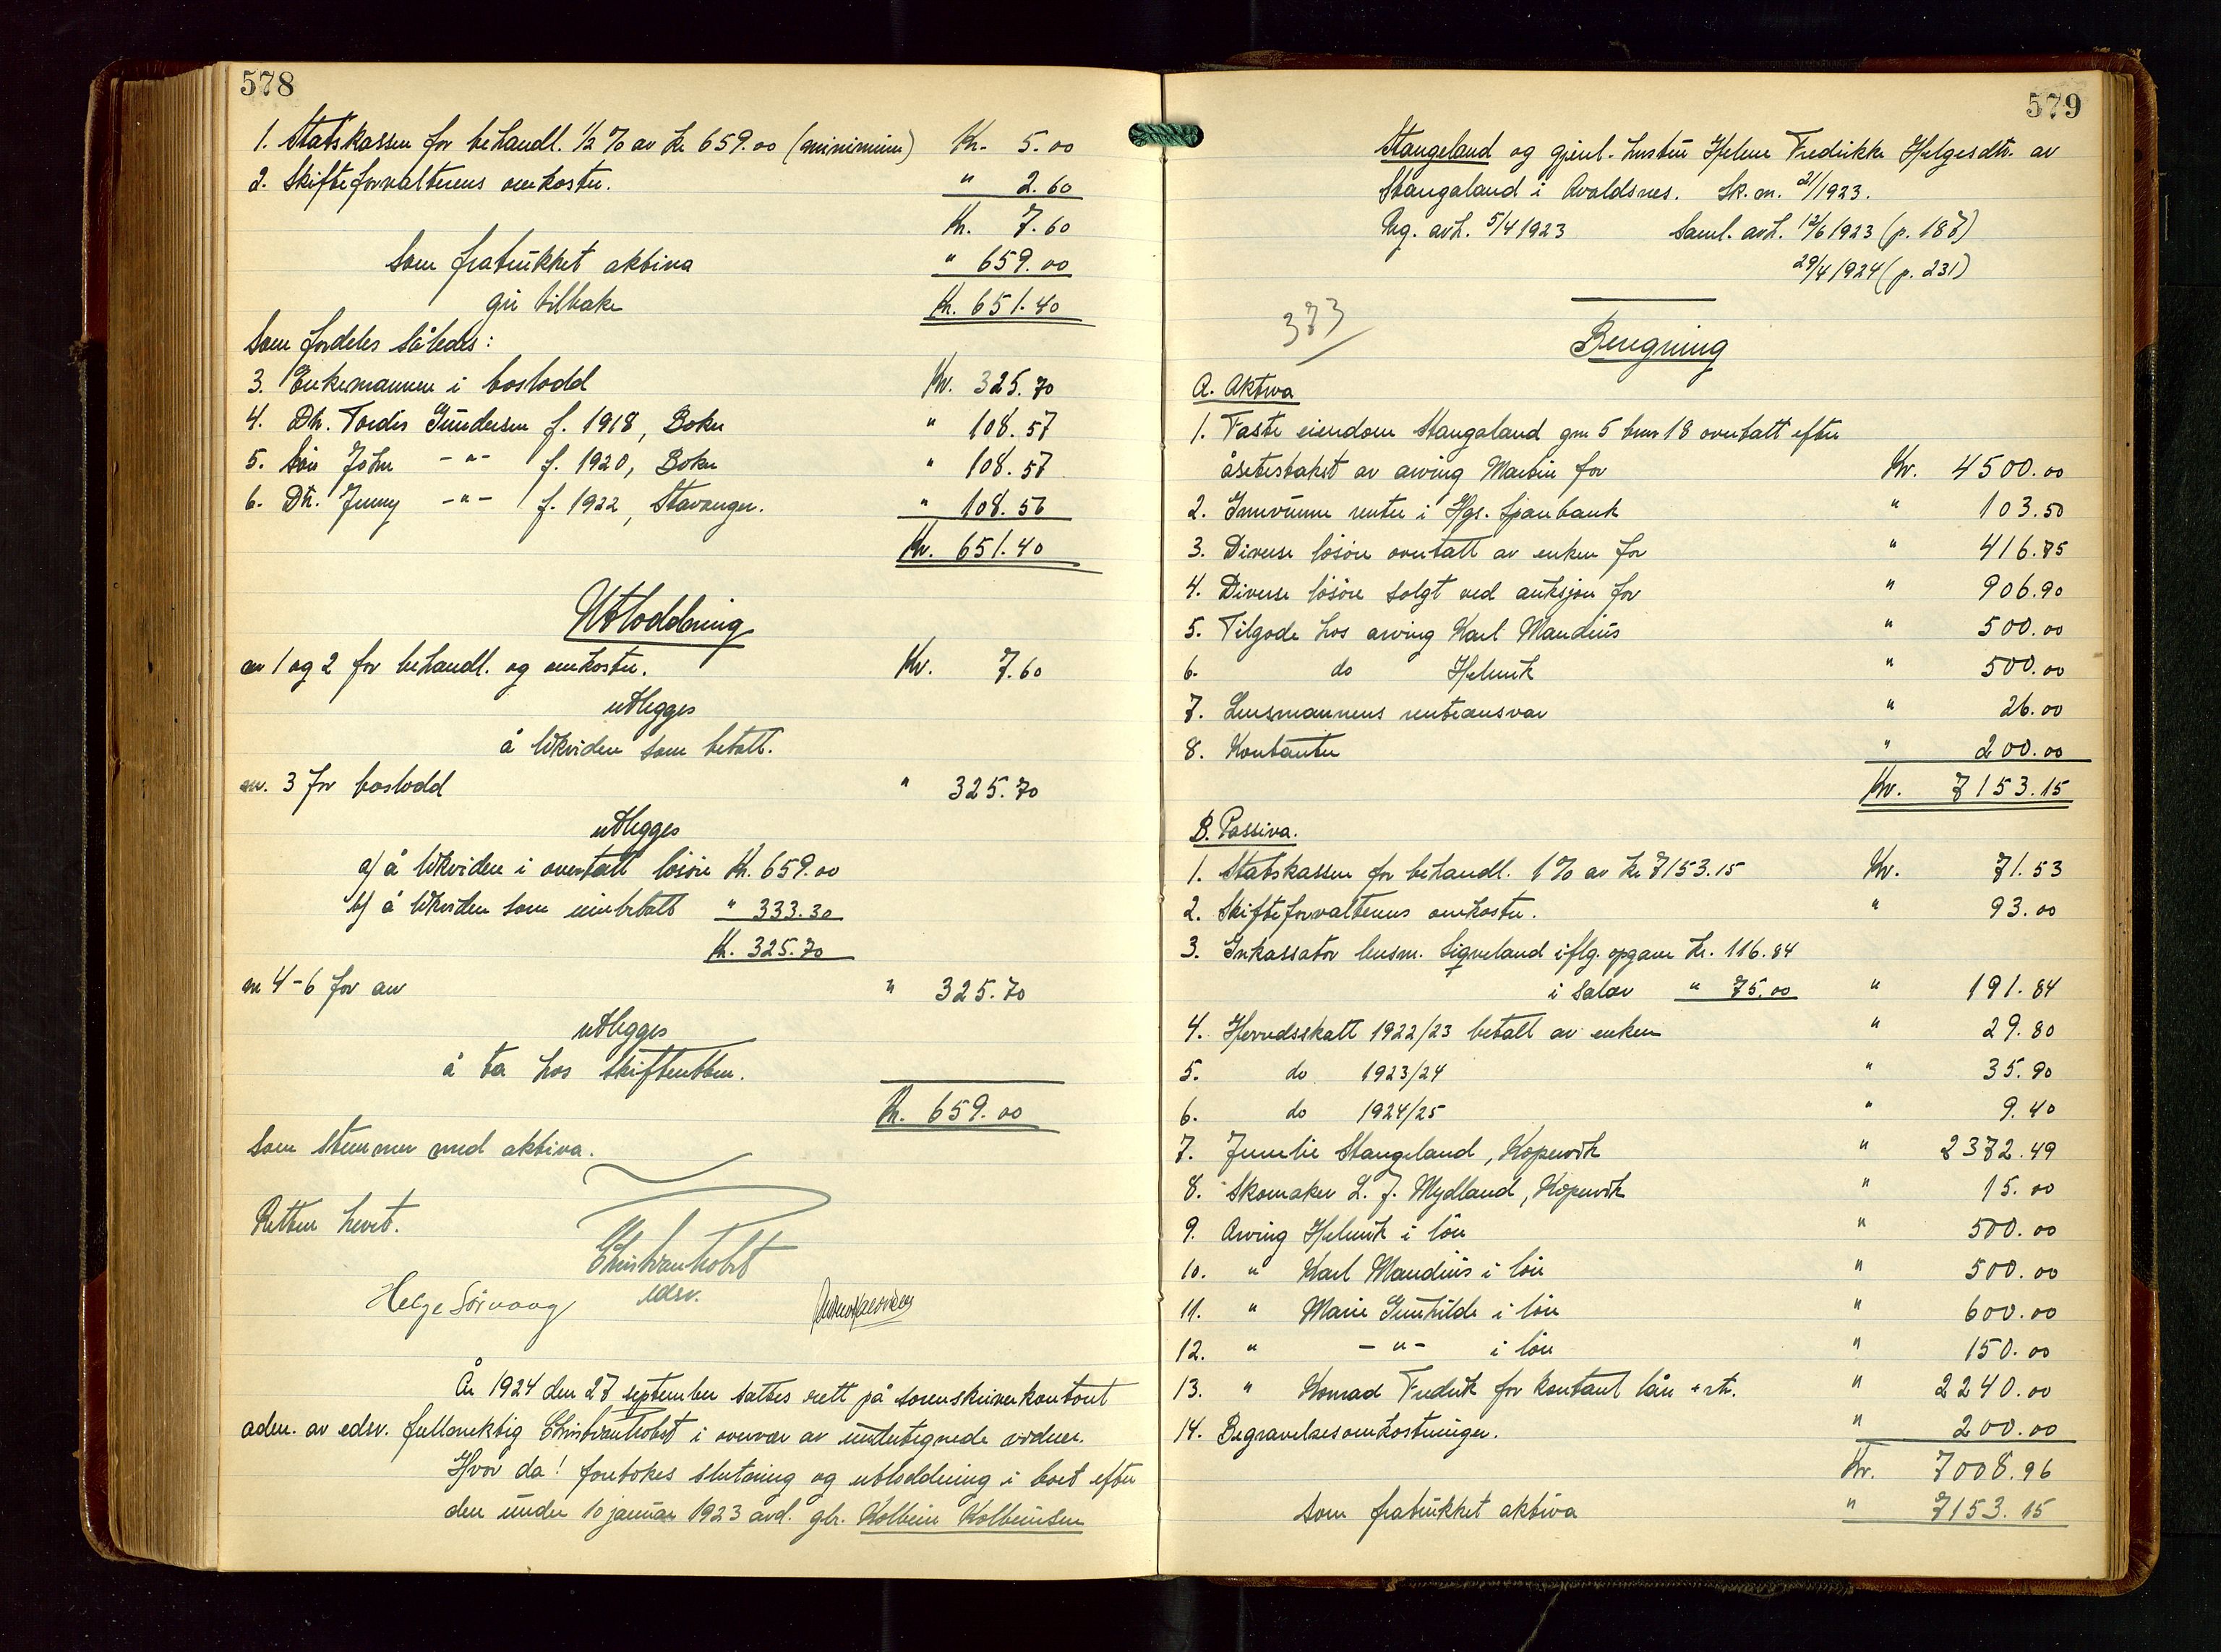 578
1. Statskassen for behandl. ½ % av kr 659.00 (minimum) Kr. 5.00
2. Skifteforvalterens omkostn. " 2.60
Kr. 7.60
Som fratrukket aktiva " 659.00
gir tilbake Kr. 651.40
Som fordeles således:
3. Enkemannen i boslodd Kr. 325.70
4. Dtr. Tordis Gundersen f. 1918, Bokn " 108.57
5. Søn John -"- f. 1920, Bokn " 108.57
6. Dtr. Jenny -"- f. 1922, Stavanger. " 108.56
Kr. 651.40
Utloddning
nr 1 og 2 for behandl. og omkostn. Kr. 7.60
utlegges
å likviden som betalt.
nr. 3 for boslodd " 325.70
utlegges
a) å likviden i overtatt løsøre Kr. 659.00
b) å likviden som innbetalt " 333.30
Kr. 325.70
nr 4-6 for arv " 325.70
utlegges
å ta hos skifteretten.
Kr. 659.00
Som stemmer med aktiva.
Retten hevet.
Christian Holst
edsv.
Helge Sörvaag
År 1924 den 27 september sattes rett på sorenskriverkontoret
adm. av edsv. fullmektig Christian Holst i overvær av undertegnede vidner.
Hvor da! foretokes slutning og utloddning i boet efter
den under 10 januar 1923 avd. gbr. Kolbein Kolbeinsen
579
Stangeland og gjenl. hustru Helene Fredrikke Helgesdtr. av
Stangaland i Avaldsnes. Sk. nr. 21/1923.
Reg. avh. 5/4 1923 Saml. avh. 12/6 1923 (p. 187)
29/4 1924 (p. 231)
373
Beregning
A. Aktiva
1. Faste eiendom Stangaland gnr 5 bnr 18 overtatt efter
åsetestakst av arving Martin for Kr. 4500.00
2. Innvunne renter i Hgs. Sparebank " 103.50
3. Diverse løsøre overtatt av enken for " 416.75
4. Diverse løsøre solgt ved auksjon for " 906.90
5. Tilgode hos arving Karl Mandius " 500.00
6. do Helmik " 500.00
7. Lensmannens renteansvar " 26.00
8. Kontanter " 200.00
Kr. 7153.15
B. Passiva.
1. Statskassen for behandl. 1 % av kr 7153.15 Kr. 71.53
2. Skifteforvalterens omkostn. " 93.00
3. Inkassator lensm. Signeland iflg. opgave kr. 116.84
i salær " 75.00 " 191.84
4. Herredsskatt 1922/23 betalt av enken " 29.80
5. do 1923/24 " 35.90
6. do 1924/25 " 9.40
7. Stangeland, Kopervik " 2372.49
8. Skomaker L. J. Mydland, Kopervik " 15.00
9. Arving Helmik i løn " 500.00
10. " Karl Mandius i løn " 500.00
11. " Marie Gunhilde i løn " 600.00
12. " -"- i løn " 150.00
13. " Konrad Fredrik for kontant lån + rtr. " 2240.00
14. Begravelsesomkostninger. " 200.00
Kr. 7008.96
Som fratrukket aktiva " 7153.15